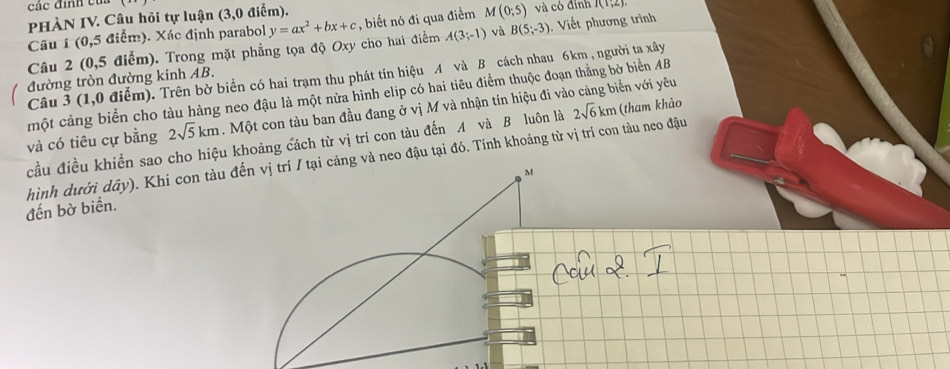 các đỉnh
PHẦN IV. Câu hỏi tự luận (3,0 điểm).
Câu 1 (0,5 điểm). Xác định parabol y = ax² + bx + c, biết nó đi qua điểm M(0;5) và có đỉnh I(1;2).
Câu 2 (0,5 điểm). Trong mặt phẳng tọa độ Oxy cho hai điểm A(3;-1) và B(5;-3). Viết phương trình
đường tròn đường kính AB.
Câu 3 (1,0 điểm). Trên bờ biển có hai trạm thu phát tín hiệu A và B cách nhau 6km, người ta xây
một cảng biển cho tàu hàng neo đậu là một nửa hình elip có hai tiêu điểm thuộc đoạn thẳng bờ biển AB
và có tiêu cự bằng 2√5 km. Một con tàu ban đầu đang ở vị M và nhận tín hiệu đi vào cảng biển với yêu
cầu điều khiển sao cho hiệu khoảng cách từ vị trí con tàu đến A và B luôn là 2√6 km (tham khảo
hình dưới đây). Khi con tàu đến vị trí I tại cảng và neo đậu tại đó. Tính khoảng từ vị trí con tàu neo đậu
đến bờ biển.
M
Câu 2. I